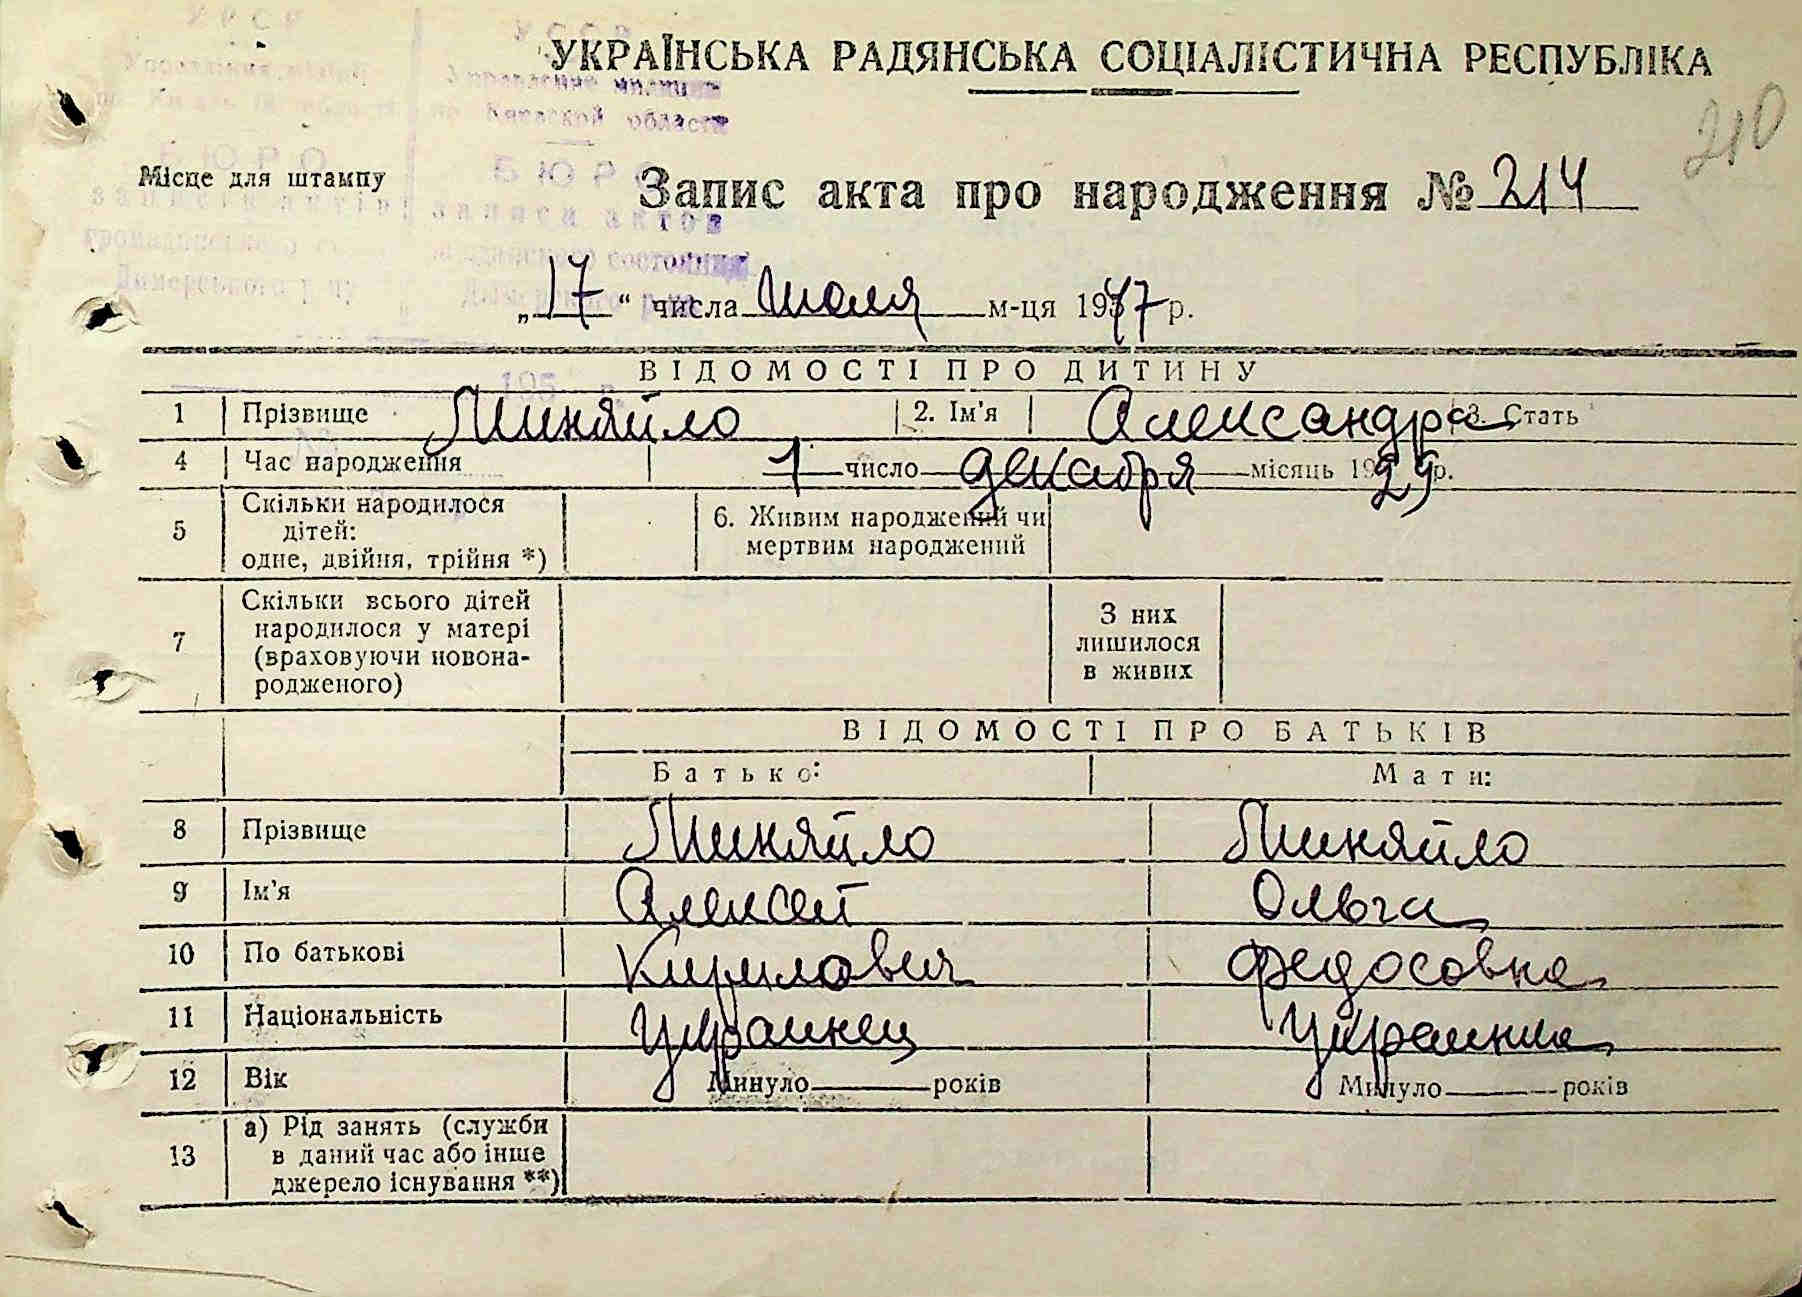 УКРАЇНСЬКА РАДЯНСЬКА СОЦІАЛІСТИЧНА РЕСПУБЛІКА
210
УРСР УССР
Управление милиции
по Киевской области
БЮРО БЮРО
Місце для штампу
записи актов
гражданского состояния
Димерського р-ну
Запис акта про народження № 214
„17“ числа июля м-ця 1957 р.
195 р.
ВІДОМОСТІ ПРО ДИТИНУ
1 Прізвище Миняйло 2. Ім'я Александра 3. Стать
4 Час народження 1 число декабря місяць 1929 р.
5 Скільки народилося дітей: одне, двійня, трійня *) 6. Живим народжений чи мертвим народжений
7 Скільки всього дітей народилося у матері (враховуючи новонародженого) З них лишилося в живих
ВІДОМОСТІ ПРО БАТЬКІВ
Батько: Мати:
8 Прізвище Миняйло Миняйло
9 Ім'я Алексей Ольга
10 По батькові Кирилович Федосовна
11 Національність Украинец Украинка
12 Вік Минуло років Минуло років
13 а) Рід занять (служби в даний час або інше джерело існування **)